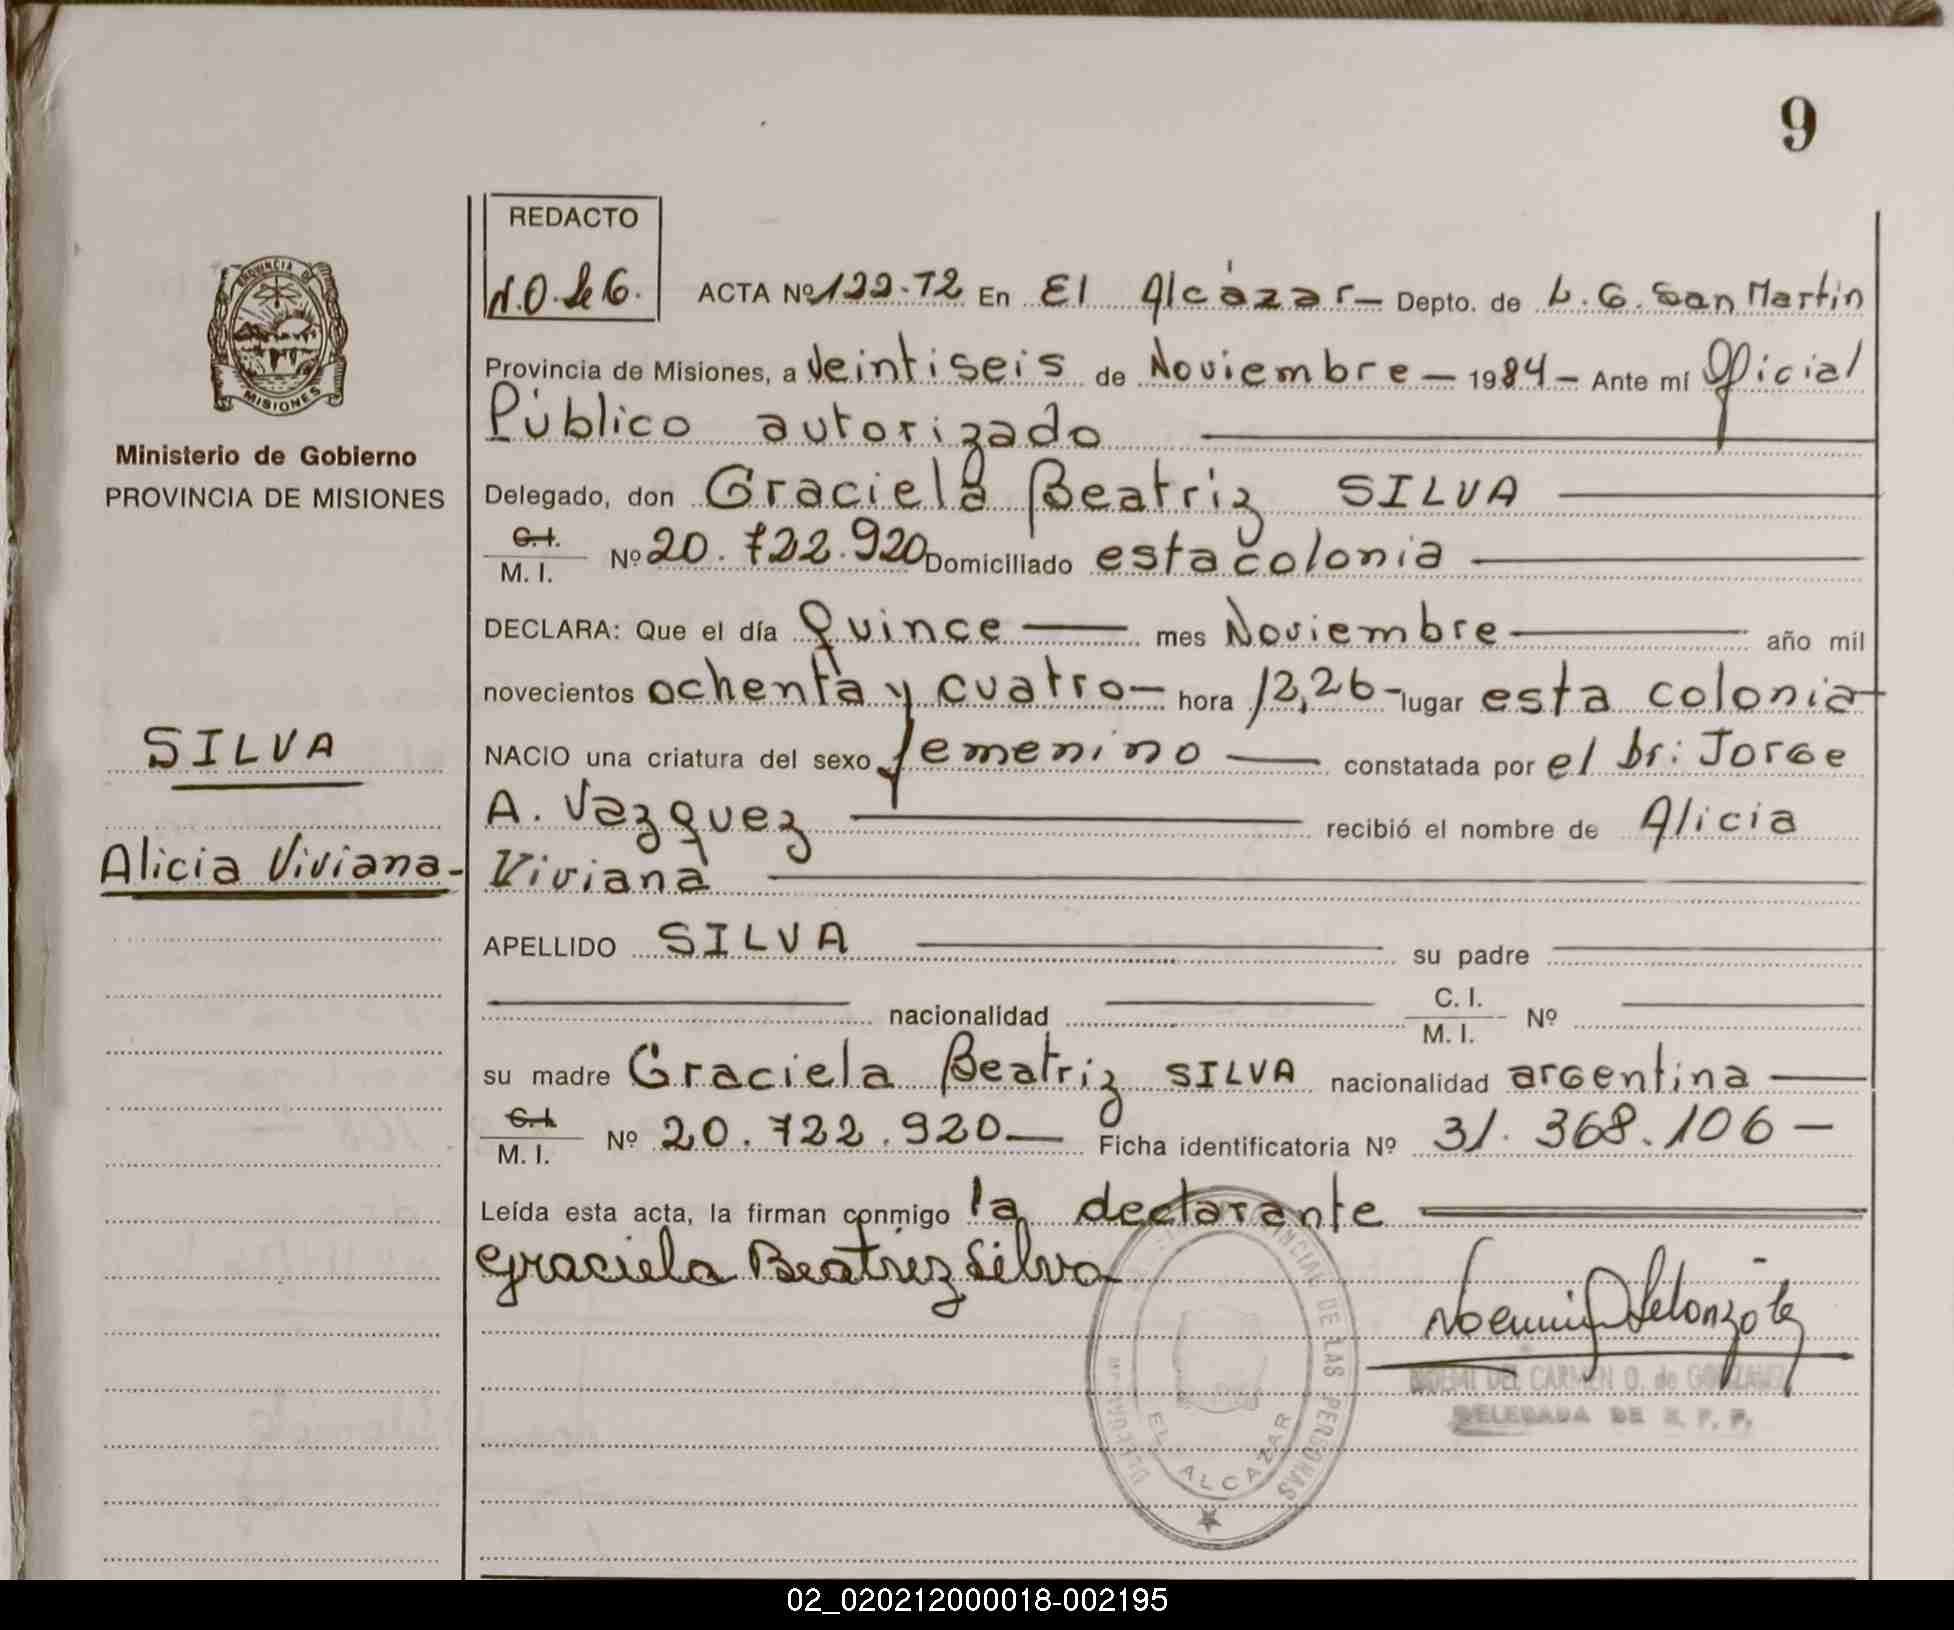 9
REDACTO
N.O.de G.
ACTA Nº 122-T2 En El Alcázar- Depto. de L.G. San Martin
PROVINCIA DE
MISIONES
Provincia de Misiones, a veintiseis de Noviembre - 1984 - Ante mí Oficial
Público autorizado
Ministerio de Gobierno
PROVINCIA DE MISIONES
Delegado, don Graciela Beatriz SILVA
C.I.
M. I. Nº 20.722.920 Domiciliado esta colonia
DECLARA: Que el día Quince mes Noviembre año mil
novecientos ochenta y cuatro - hora 12,26 - lugar esta colonia
SILVA
NACIO una criatura del sexo femenino constatada por el Dr: Jorge
A. Vazquez recibió el nombre de Alicia
Alicia Viviana-
Viviana
APELLIDO SILVA su padre
nacionalidad C. I.
M. I. Nº
su madre Graciela Beatriz SILVA nacionalidad argentina
C.I.
M. I. Nº 20.722.920 - Ficha identificatoria Nº 31.368.106 -
Leída esta acta, la firman conmigo la declarante
Graciela Beatriz Silva
DE LAS PERSONAS
EL ALCAZAR
NOEMI DEL CARMEN O. de GONZALEZ
DELEGADA DE R. P. P.
02_020212000018-002195